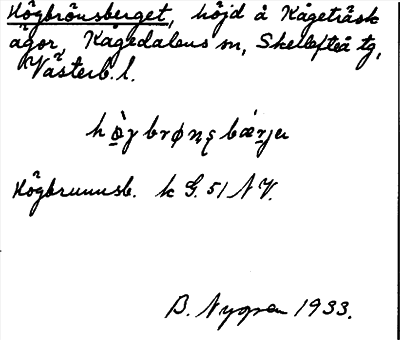 Högbrönsberget, höjd å Kågeträsk
ägor, Kågedalens sn, Skellefteå tg,
Västerb. l.
hö̀gbrønsbærjeɹ
Högbrunnsb. k G. 51 NV.
B. Nygren 1933.